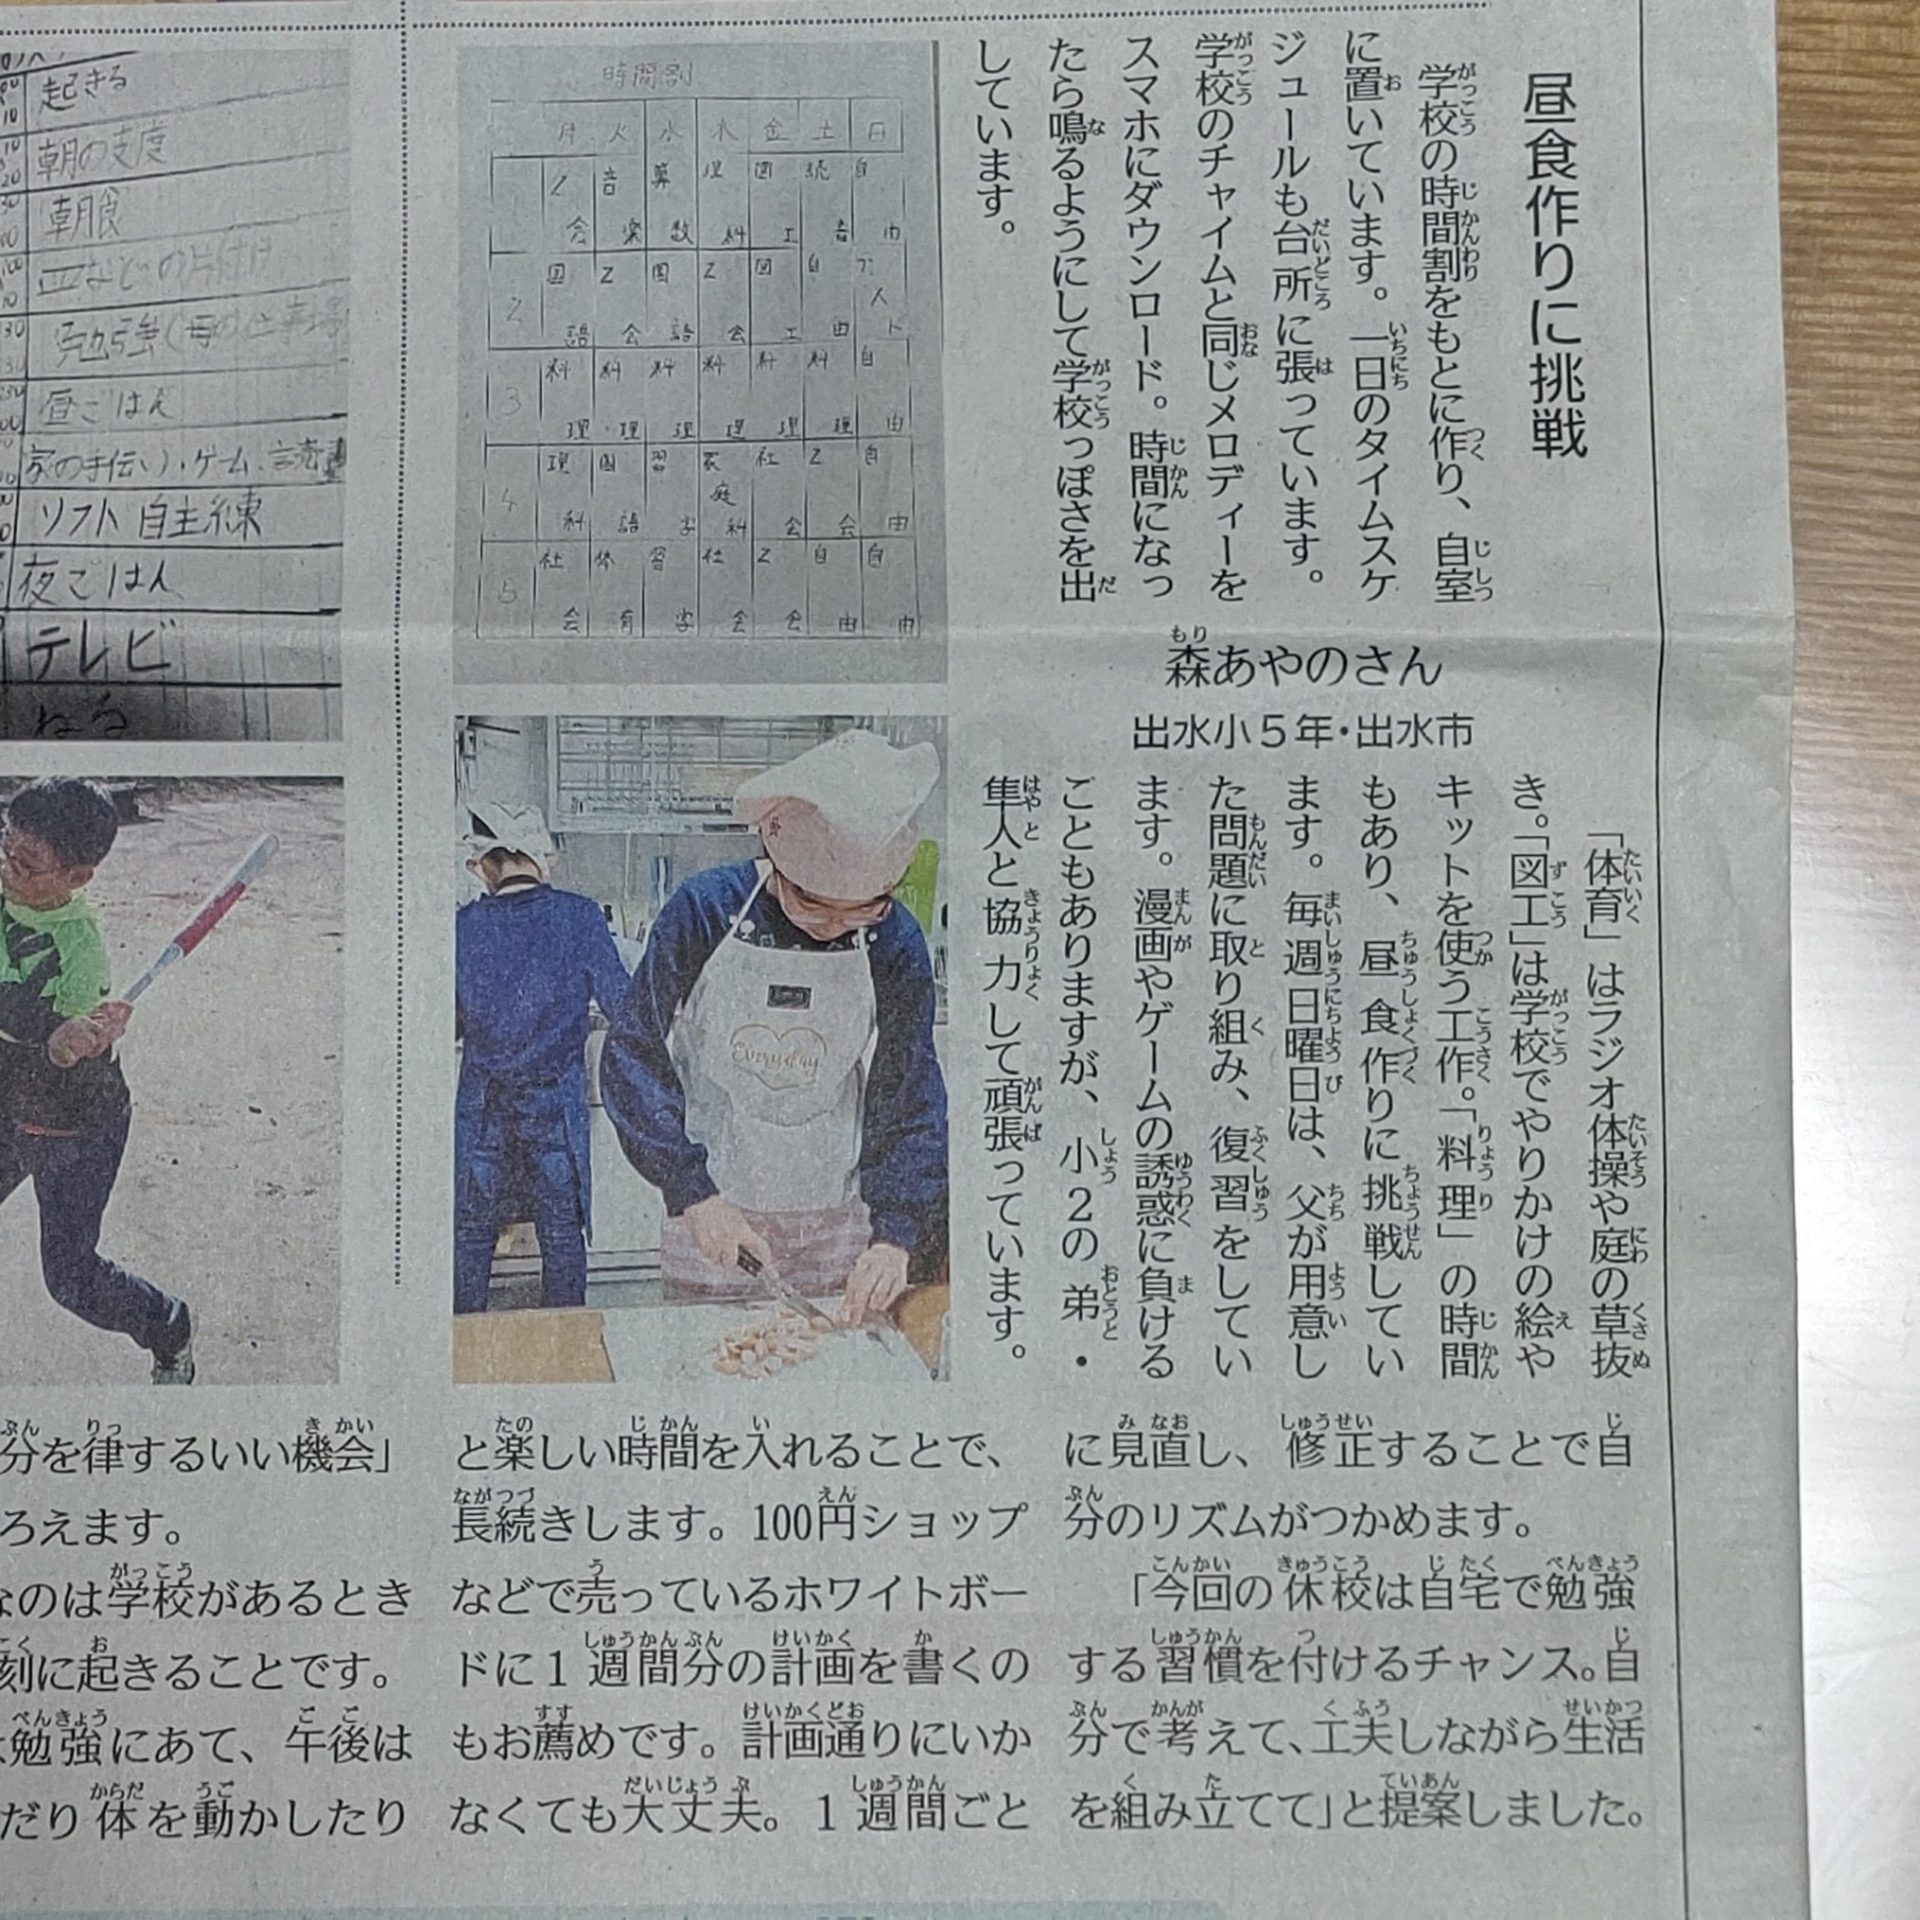 昼食作りに挑戦
学校の時間割をもとに作り、自室
に置いています。一日のタイムスケ
ジュールも台所に張っています。
学校のチャイムと同じメロディーを
スマホにダウンロード。時間になっ
たら鳴るようにして学校っぽさを出
しています。
森あやのさん
出水小5年・出水市
「体育」はラジオ体操や庭の草抜
き。「図工」は学校でやりかけの絵や
キットを使う工作。「料理」の時間
もあり、昼食作りに挑戦してい
ます。毎週日曜日は、父が用意し
た問題に取り組み、復習をしてい
ます。漫画やゲームの誘惑に負ける
こともありますが、小2の弟・
隼人と協力して頑張っています。
時間割
月 火 水 木 金 土 日
1
音楽 算数 理科 図工
2
国語 国語 図工 自由
3
料理 料理 料理 料理 料理 料理 自由
4
理科 国語 習字 家庭科 社会 自由
5
社会 体育 習字 社会 自由 自由
Everyday
起きる
朝の支度
朝食
皿などの片付け
勉強
昼ごはん
家の手伝い、ゲーム、読書
ソフト自主練
夜ごはん
テレビ
ねる
分を律するいい機会」
ろえます。
なのは学校があるとき
刻に起きることです。
勉強にあて、午後は
だり体を動かしたり
と楽しい時間を入れることで、
長続きします。100円ショップ
などで売っているホワイトボー
ドに1週間分の計画を書くの
もお薦めです。計画通りにいか
なくても大丈夫。1週間ごと
に見直し、修正することで自
分のリズムがつかめます。
「今回の休校は自宅で勉強
する習慣を付けるチャンス。自
分で考えて、工夫しながら生活
を組み立てて」と提案しました。